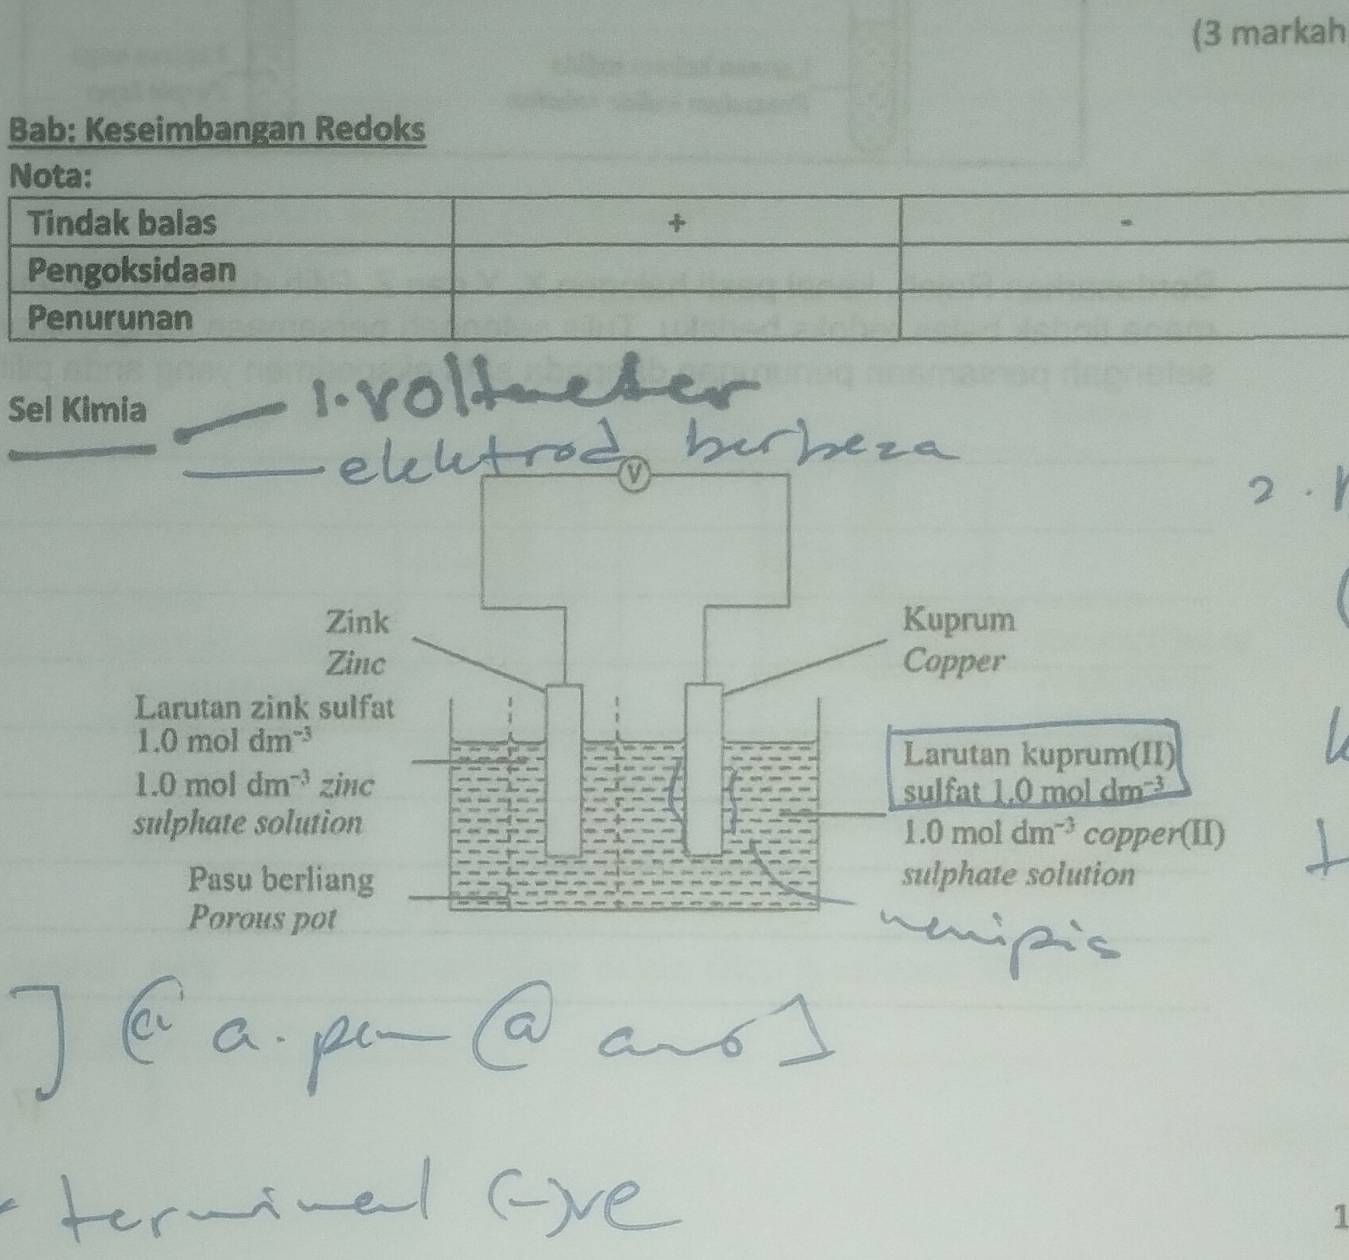 (3 markah
Bab: Keseimbangan Redoks
Nota:
Tindak balas + -
Pengoksidaan
Penurunan
Sel Kimia
1. voltmeter
elektrod berbeza
V
2.
Zink
Zinc
Kuprum
Copper
Larutan zink sulfat
1.0 mol dm⁻³
1.0 mol dm⁻³ zinc
sulphate solution
Larutan kuprum(II)
sulfat 1.0 mol dm⁻³
1.0 mol dm⁻³ copper(II)
sulphate solution
Pasu berliang
Porous pot
menipis
terminal (-)ve
1